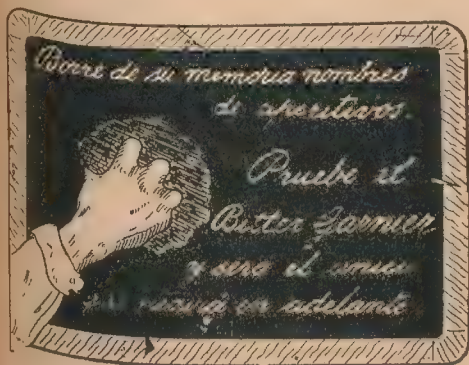 Borre de su memoria nombres
de aperitivos.
Pruebe el
Bitter Garnier
y será el único
en adelante